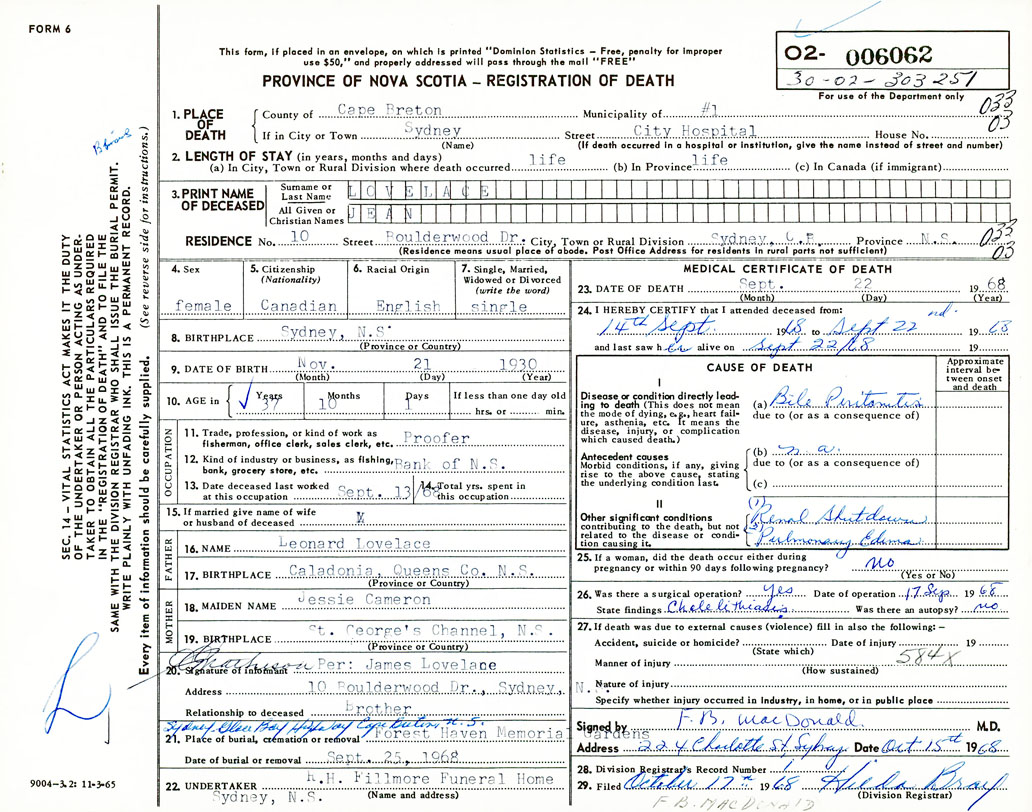 FORM 6
This form, if placed in an envelope, on which is printed "Dominion Statistics – Free, penalty for improper
use $50," and properly addressed will pass through the mail "FREE"
PROVINCE OF NOVA SCOTIA – REGISTRATION OF DEATH
02- 006062
30-02-303251
For use of the Department only
033
03
1. PLACE OF DEATH
County of Cape Breton Municipality of #1
If in City or Town Sydney Street City Hospital House No.
(Name) (If death occurred in a hospital or institution, give the name instead of street and number)
2. LENGTH OF STAY (in years, months and days)
(a) In City, Town or Rural Division where death occurred life (b) In Province life (c) In Canada (if immigrant)
3. PRINT NAME OF DECEASED
Surname or Last Name LOVELACE
All Given or Christian Names JEAN
RESIDENCE No. 10 Street Boulderwood Dr. City, Town or Rural Division Sydney, C.B. Province N.S.
(Residence means usual place of abode. Post Office Address for residents in rural parts not sufficient)
033
03
4. Sex female
5. Citizenship (Nationality) Canadian
6. Racial Origin English
7. Single, Married, Widowed or Divorced (write the word) single
8. BIRTHPLACE Sydney, N.S.
(Province or Country)
9. DATE OF BIRTH Nov. 21 1930
(Month) (Day) (Year)
10. AGE in Years 37 Months 10 Days 1 If less than one day old
hrs. or min.
OCCUPATION
11. Trade, profession, or kind of work as
fisherman, office clerk, sales clerk, etc. Proofer
12. Kind of industry or business, as fishing,
bank, grocery store, etc. Bank of N.S.
13. Date deceased last worked
at this occupation Sept. 13/68
14. Total yrs. spent in
this occupation
15. If married give name of wife
or husband of deceased
FATHER
16. NAME Leonard Lovelace
17. BIRTHPLACE Caladonia, Queens Co. N.S.
(Province or Country)
MOTHER
18. MAIDEN NAME Jessie Cameron
19. BIRTHPLACE St. George's Channel, N.S.
(Province or Country)
20. Signature of informant Per: James Lovelace
Address 10 Boulderwood Dr., Sydney, N.S.
Relationship to deceased Brother
Sydney Glace Bay Highway Cape Breton N.S.
21. Place of burial, cremation or removal Forest Haven Memorial Gardens
Date of burial or removal Sept. 25, 1968
22. UNDERTAKER R.H. Fillmore Funeral Home
Sydney, N.S. (Name and address)
MEDICAL CERTIFICATE OF DEATH
23. DATE OF DEATH Sept. 22 1968
(Month) (Day) (Year)
24. I HEREBY CERTIFY that I attended deceased from:
14th Sept. 1968 to Sept 22nd. 1968
and last saw her alive on Sept 22/68 19
CAUSE OF DEATH
Approximate interval between onset and death
I
Disease or condition directly leading to death (This does not mean the mode of dying, e.g., heart failure, asthenia, etc. It means the disease, injury, or complication which caused death.)
(a) Bile Peritonitis
due to (or as a consequence of)
Antecedent causes
Morbid conditions, if any, giving rise to the above cause, stating the underlying condition last.
(b) n.a.
due to (or as a consequence of)
(c)
II
Other significant conditions
contributing to the death, but not related to the disease or condition causing it.
(1) Renal Shutdown
(2) Pulmonary Edema
25. If a woman, did the death occur either during
pregnancy or within 90 days following pregnancy? no
(Yes or No)
26. Was there a surgical operation? yes Date of operation 17 Sep. 1968
State findings Cholelithiasis. Was there an autopsy? no
27. If death was due to external causes (violence) fill in also the following: –
Accident, suicide or homicide? Date of injury 19
(State which)
584X
Manner of injury
(How sustained)
Nature of injury
Specify whether injury occurred in Industry, in home, or in public place
Signed by F. B. MacDonald. M.D.
Address 224 Charlotte St, Sydney Date Oct 15th 1968
28. Division Registrar's Record Number
29. Filed October 17th 1968 Hilda Bray
(Division Registrar)
F B. MACDONALD
SEC. 14 – VITAL STATISTICS ACT MAKES IT THE DUTY
OF THE UNDERTAKER OR PERSON ACTING AS UNDER-
TAKER TO OBTAIN ALL THE PARTICULARS REQUIRED
IN THE "REGISTRATION OF DEATH" AND TO FILE THE
SAME WITH THE DIVISION REGISTRAR WHO SHALL ISSUE THE BURIAL PERMIT.
WRITE PLAINLY WITH UNFADING INK. THIS IS A PERMANENT RECORD.
Every item of information should be carefully supplied. (See reverse side for instructions.)
9004-3.2: 11-3-65